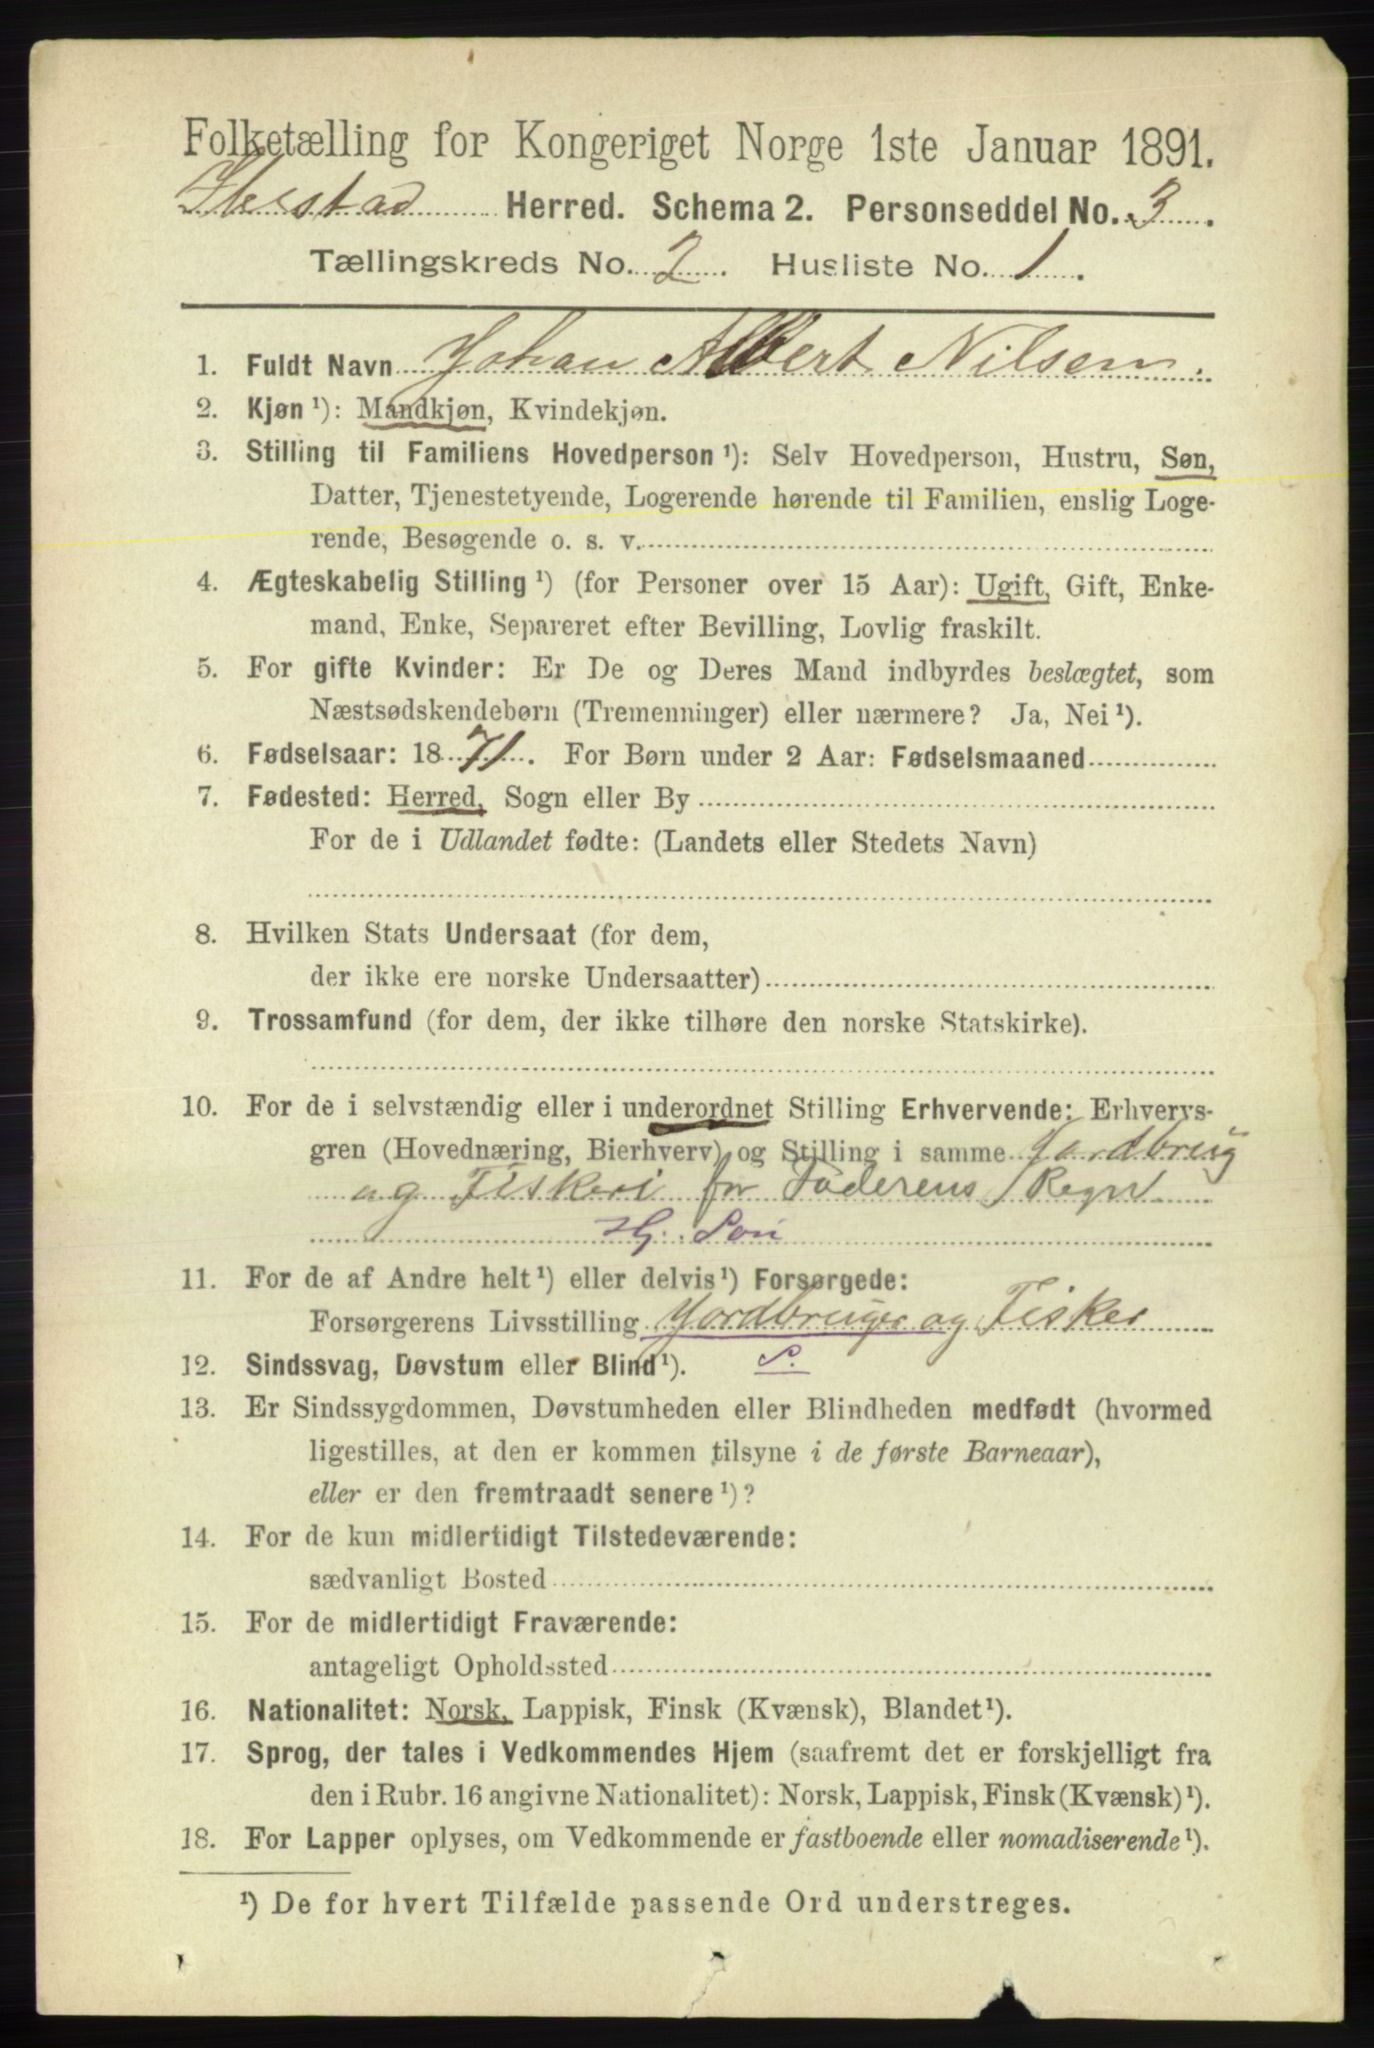 Folketælling for Kongeriget Norge 1ste Januar 1891.
Ibestad Herred. Schema 2. Personseddel No. 3.
Tællingskreds No. 2. Husliste No. 1.
1. Fuldt Navn Johan Albert Nilsen.
2. Kjøn ¹): Mandkjøn, Kvindekjøn.
3. Stilling til Familiens Hovedperson ¹): Selv Hovedperson, Hustru, Søn,
Datter, Tjenestetyende, Logerende hørende til Familien, enslig Loge-
rende, Besøgende o. s. v.
4. Ægteskabelig Stilling ¹) (for Personer over 15 Aar): Ugift, Gift, Enke-
mand, Enke, Separeret efter Bevilling, Lovlig fraskilt.
5. For gifte Kvinder: Er De og Deres Mand indbyrdes beslægtet, som
Næstsødskendebørn (Tremenninger) eller nærmere? Ja, Nei ¹).
6. Fødselsaar: 1871. For Børn under 2 Aar: Fødselsmaaned
7. Fødested: Herred, Sogn eller By
For de i Udlandet fødte: (Landets eller Stedets Navn)
8. Hvilken Stats Undersaat (for dem,
der ikke ere norske Undersaatter)
9. Trossamfund (for dem, der ikke tilhøre den norske Statskirke).
10. For de i selvstændig eller i underordnet Stilling Erhvervende: Erhvervs-
gren (Hovednæring, Bierhverv) og Stilling i samme Jordbrug
og Fiskeri for Faderens Regn
Hj. Søn
11. For de af Andre helt ¹) eller delvis ¹) Forsørgede:
Forsørgerens Livsstilling Jordbruger og Fisker
12. Sindssvag, Døvstum eller Blind ¹). S.
13. Er Sindssygdommen, Døvstumheden eller Blindheden medfødt (hvormed
ligestilles, at den er kommen tilsyne i de første Barneaar),
eller er den fremtraadt senere ¹)?
14. For de kun midlertidigt Tilstedeværende:
sædvanligt Bosted
15. For de midlertidigt Fraværende:
antageligt Opholdssted
16. Nationalitet: Norsk, Lappisk, Finsk (Kvænsk), Blandet ¹).
17. Sprog, der tales i Vedkommendes Hjem (saafremt det er forskjelligt fra
den i Rubr. 16 angivne Nationalitet): Norsk, Lappisk, Finsk (Kvænsk) ¹).
18. For Lapper oplyses, om Vedkommende er fastboende eller nomadiserende ¹).
¹) De for hvert Tilfælde passende Ord understreges.